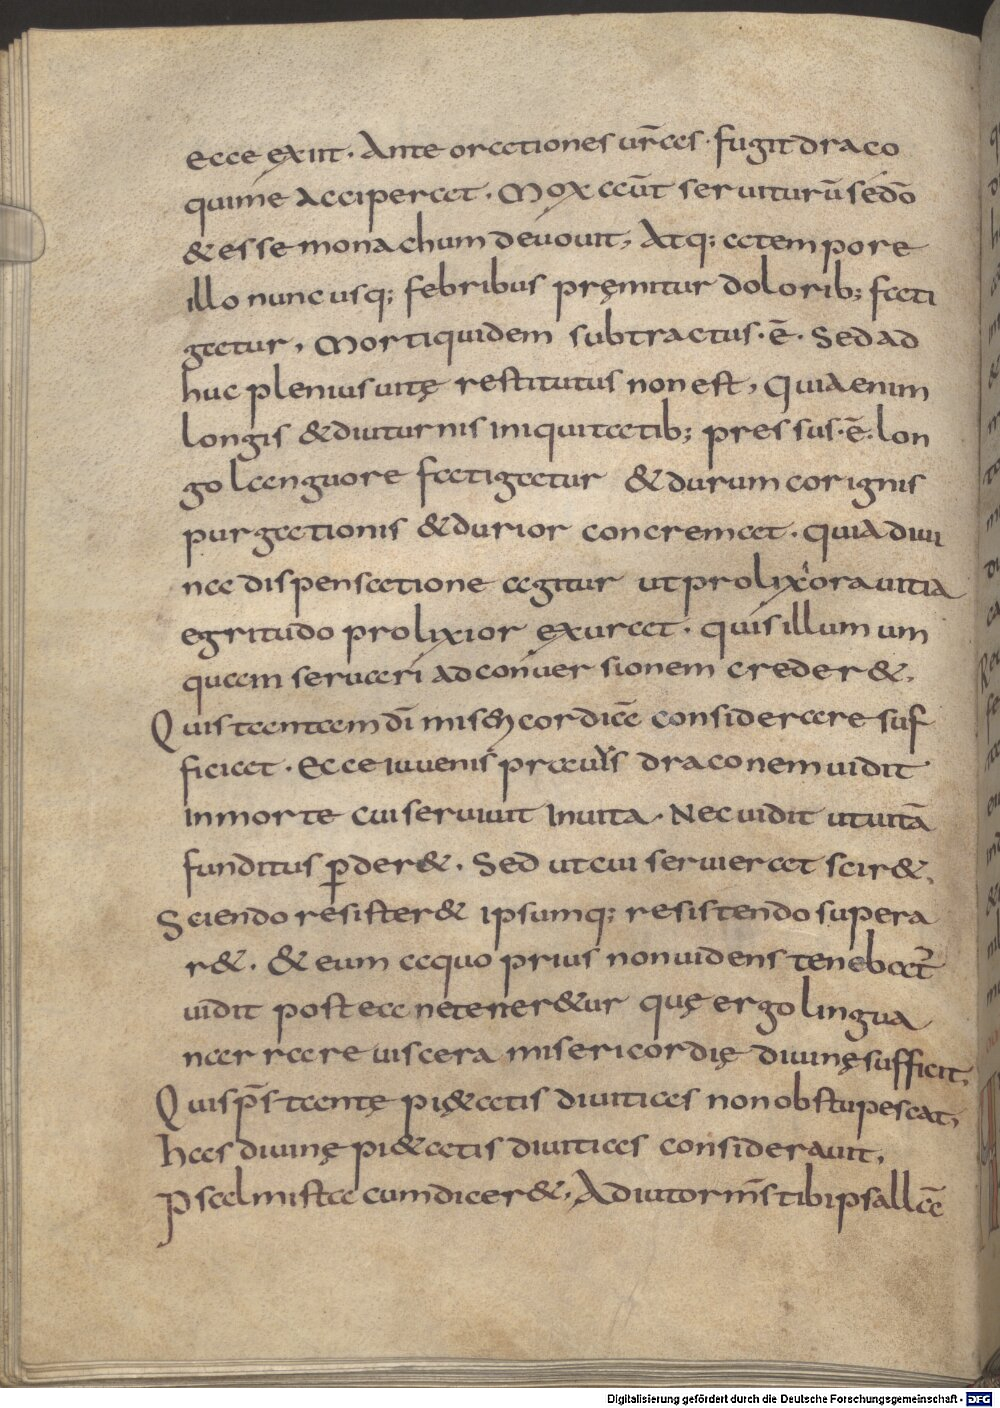 ecce exiit. Ante orationes ur̄as. fugit draco
qui me acciperat. Mox aut̄ seruiturū se dō
& esse monachum deuouit, Atq; a tempore
illo nunc usq; febribus pręmitur dolorib; fati
gatur, Morti quidem subtractus. ē. Sed ad
huc plenius uitę restitutus non est, Quia enim
longis & diuturnis iniquitatib; pressus. ē. lon
go languore fatigatur & durum cor ignis
purgationis & durior concremat. Quia diui
na dispensatione agitur ut prolixiora uitia
egritudo prolixior exurat. quis illum um
quam seruari ad conuersionem creder&.
Quis tantam dī misericordiā considerare suf
ficiat. Ecce iuuenis prauus draconem uidit
in morte cui seruiuit in uita. Nec uidit ut uitā
funditus p̱der&. Sed ut cui seruierat scir&.
Sciendo resister& ipsumq; resistendo supera
r&. & eum a quo prius non uidens tenebat̄
uidit postea ne tener&ur quę ergo lingua
narrare uiscera misericordię diuinę sufficit.
Quis p̄s tantę pi&atis diuitias non obstupescat,
has diuinę pi&atis diuitias considerauit.
Psalmista cum dicer&. Adiutor m̄s tibi psallā